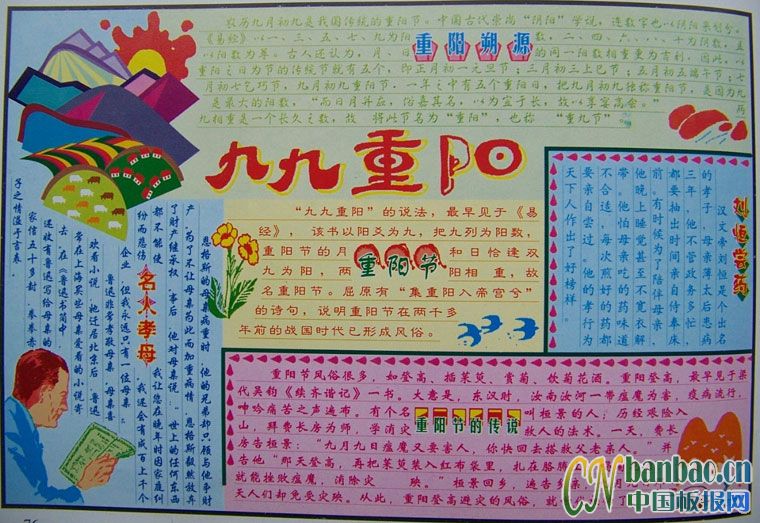 农历九月初九是我国传统的重阳节。中国古代崇尚“阴阳”学说，连数字也以阴阳来划分。
《易经》以一、三、五、七、九为阳数，二、四、六、八、十为阴数，且
重阳朔源
以阳数为尊。古人还认为，月、日的同一阳数相重重为吉利，因此，以
重阳之日为节的传统节就有五个，即正月初一元旦节；三月初三上巳节；五月初五端午节；七
月初七乞巧节，九月初九重阳节。一年之中有五个重阳日，把九月初九独称重阳节，是因为九
是最大的阳数，“而日月并应，俗嘉其名，以为宜于长，故以享宴高会。”两
九相重是一个长久之数，故 将以节名为“重阳”，也称“重九节”。
九九重阳
“九九重阳”的说法，最早见于《易
经》，该书以阳爻为九，把九列为阳数，
重阳节的月和日恰逢双
重阳节
九为阳，两阳相重，故
名重阳节。屈原有“集重阳入帝宫兮”
的诗句，说明重阳节在两千多
年前的战国时代已形成风俗。
刘恒尝药
汉文帝刘恒是个出名
的孝子，母亲薄太后患病
三年，他不管政务多忙
都要抽出时间亲自侍奉床
前。有时候为了陪伴母亲，
他晚上睡觉甚至不宽衣解
带。他怕母亲吃的药味道
不合适，每次煎好的药都
要亲自尝过。他的孝行为
天下人作出了好榜样。
恩格斯的母亲病重时，他的兄弟却只顾与他争财
产。为了不让母亲为此而加重病情，恩格斯毅然放弃
了财产继承权。事后，他对母亲说：“世上的任何东西
都不能使我让您在晚年时因家庭纠
名人孝母
纷而悲伤。我还会有成百上千个
企业，但我永远只有一位母亲。”
鲁迅非常孝敬母亲，母亲喜
欢看小说，她迁居北京后，鲁迅
常在上海买些母亲爱看的小说寄
去。在《鲁迅书简》中，
收有鲁迅写给母亲的
家信五十多封，拳拳赤
子之情溢于言表。
重阳节风俗很多，如登高、插茱萸、赏菊、饮菊花酒。重阳登高，最早见于梁
代吴钧《续齐谐记》一书。大意是，东汉时，汝南汝河一带瘟魔为害，疫病流行，
呻吟痛苦之声遍布。有个名叫桓景的人；历经艰险入
重阳节的传说
山，拜费长房为师，学消灾救人的法术。一天，费长
房告桓景：“九月九日瘟魔又要害人，你快回去搭救父老亲人。”并
告他“那天登高，再把茱萸装入红布袋里，扎在胳膊
就能挫败瘟魔，消除灾殃。”桓景回乡，遍告乡亲，九月九
天人们却免受灾殃。从此，重阳登高避灾的风俗，就
CNbanbao.cn
中国板报网